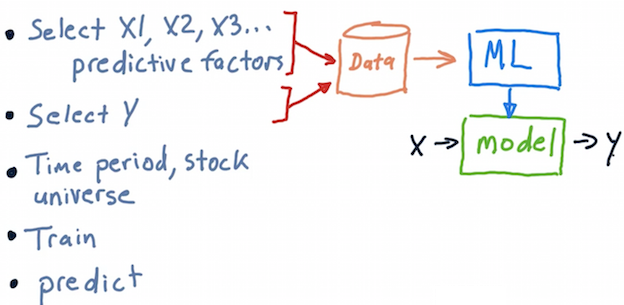 • Select X1, X2, X3...
predictive factors
• Select Y
• Time period, stock
universe
• Train
• predict
Data
ML
X → model → Y